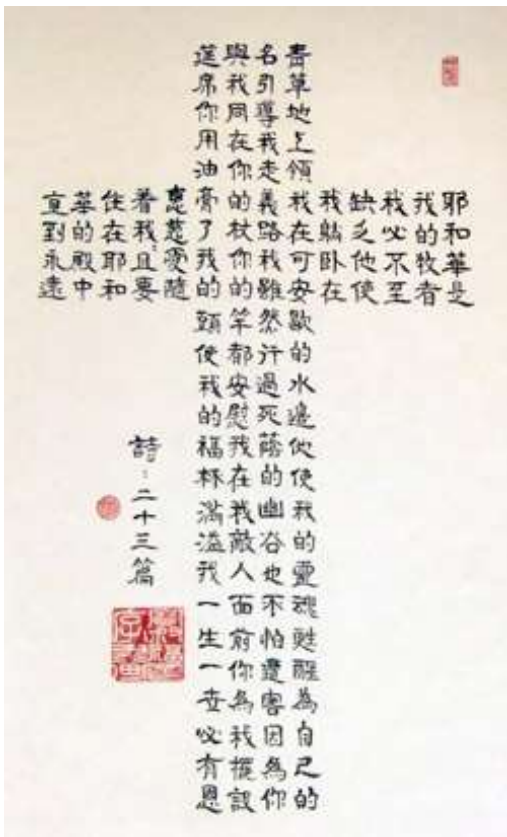 耶和華是
我的牧者
我必不至
缺乏他使
我躺臥在
青草地上領我在可安歇的水邊他使我的靈魂甦醒為自己的
名引導我走義路我雖然行過死蔭的幽谷也不怕遭害因為你
與我同在你的杖你的竿都安慰我在我敵人面前你為我擺設
筵席你用油膏了我的頭使我的福杯滿溢我一生一世必有恩
惠慈愛隨
着我且要
住在耶和
華的殿中
直到永遠
詩:二十三篇